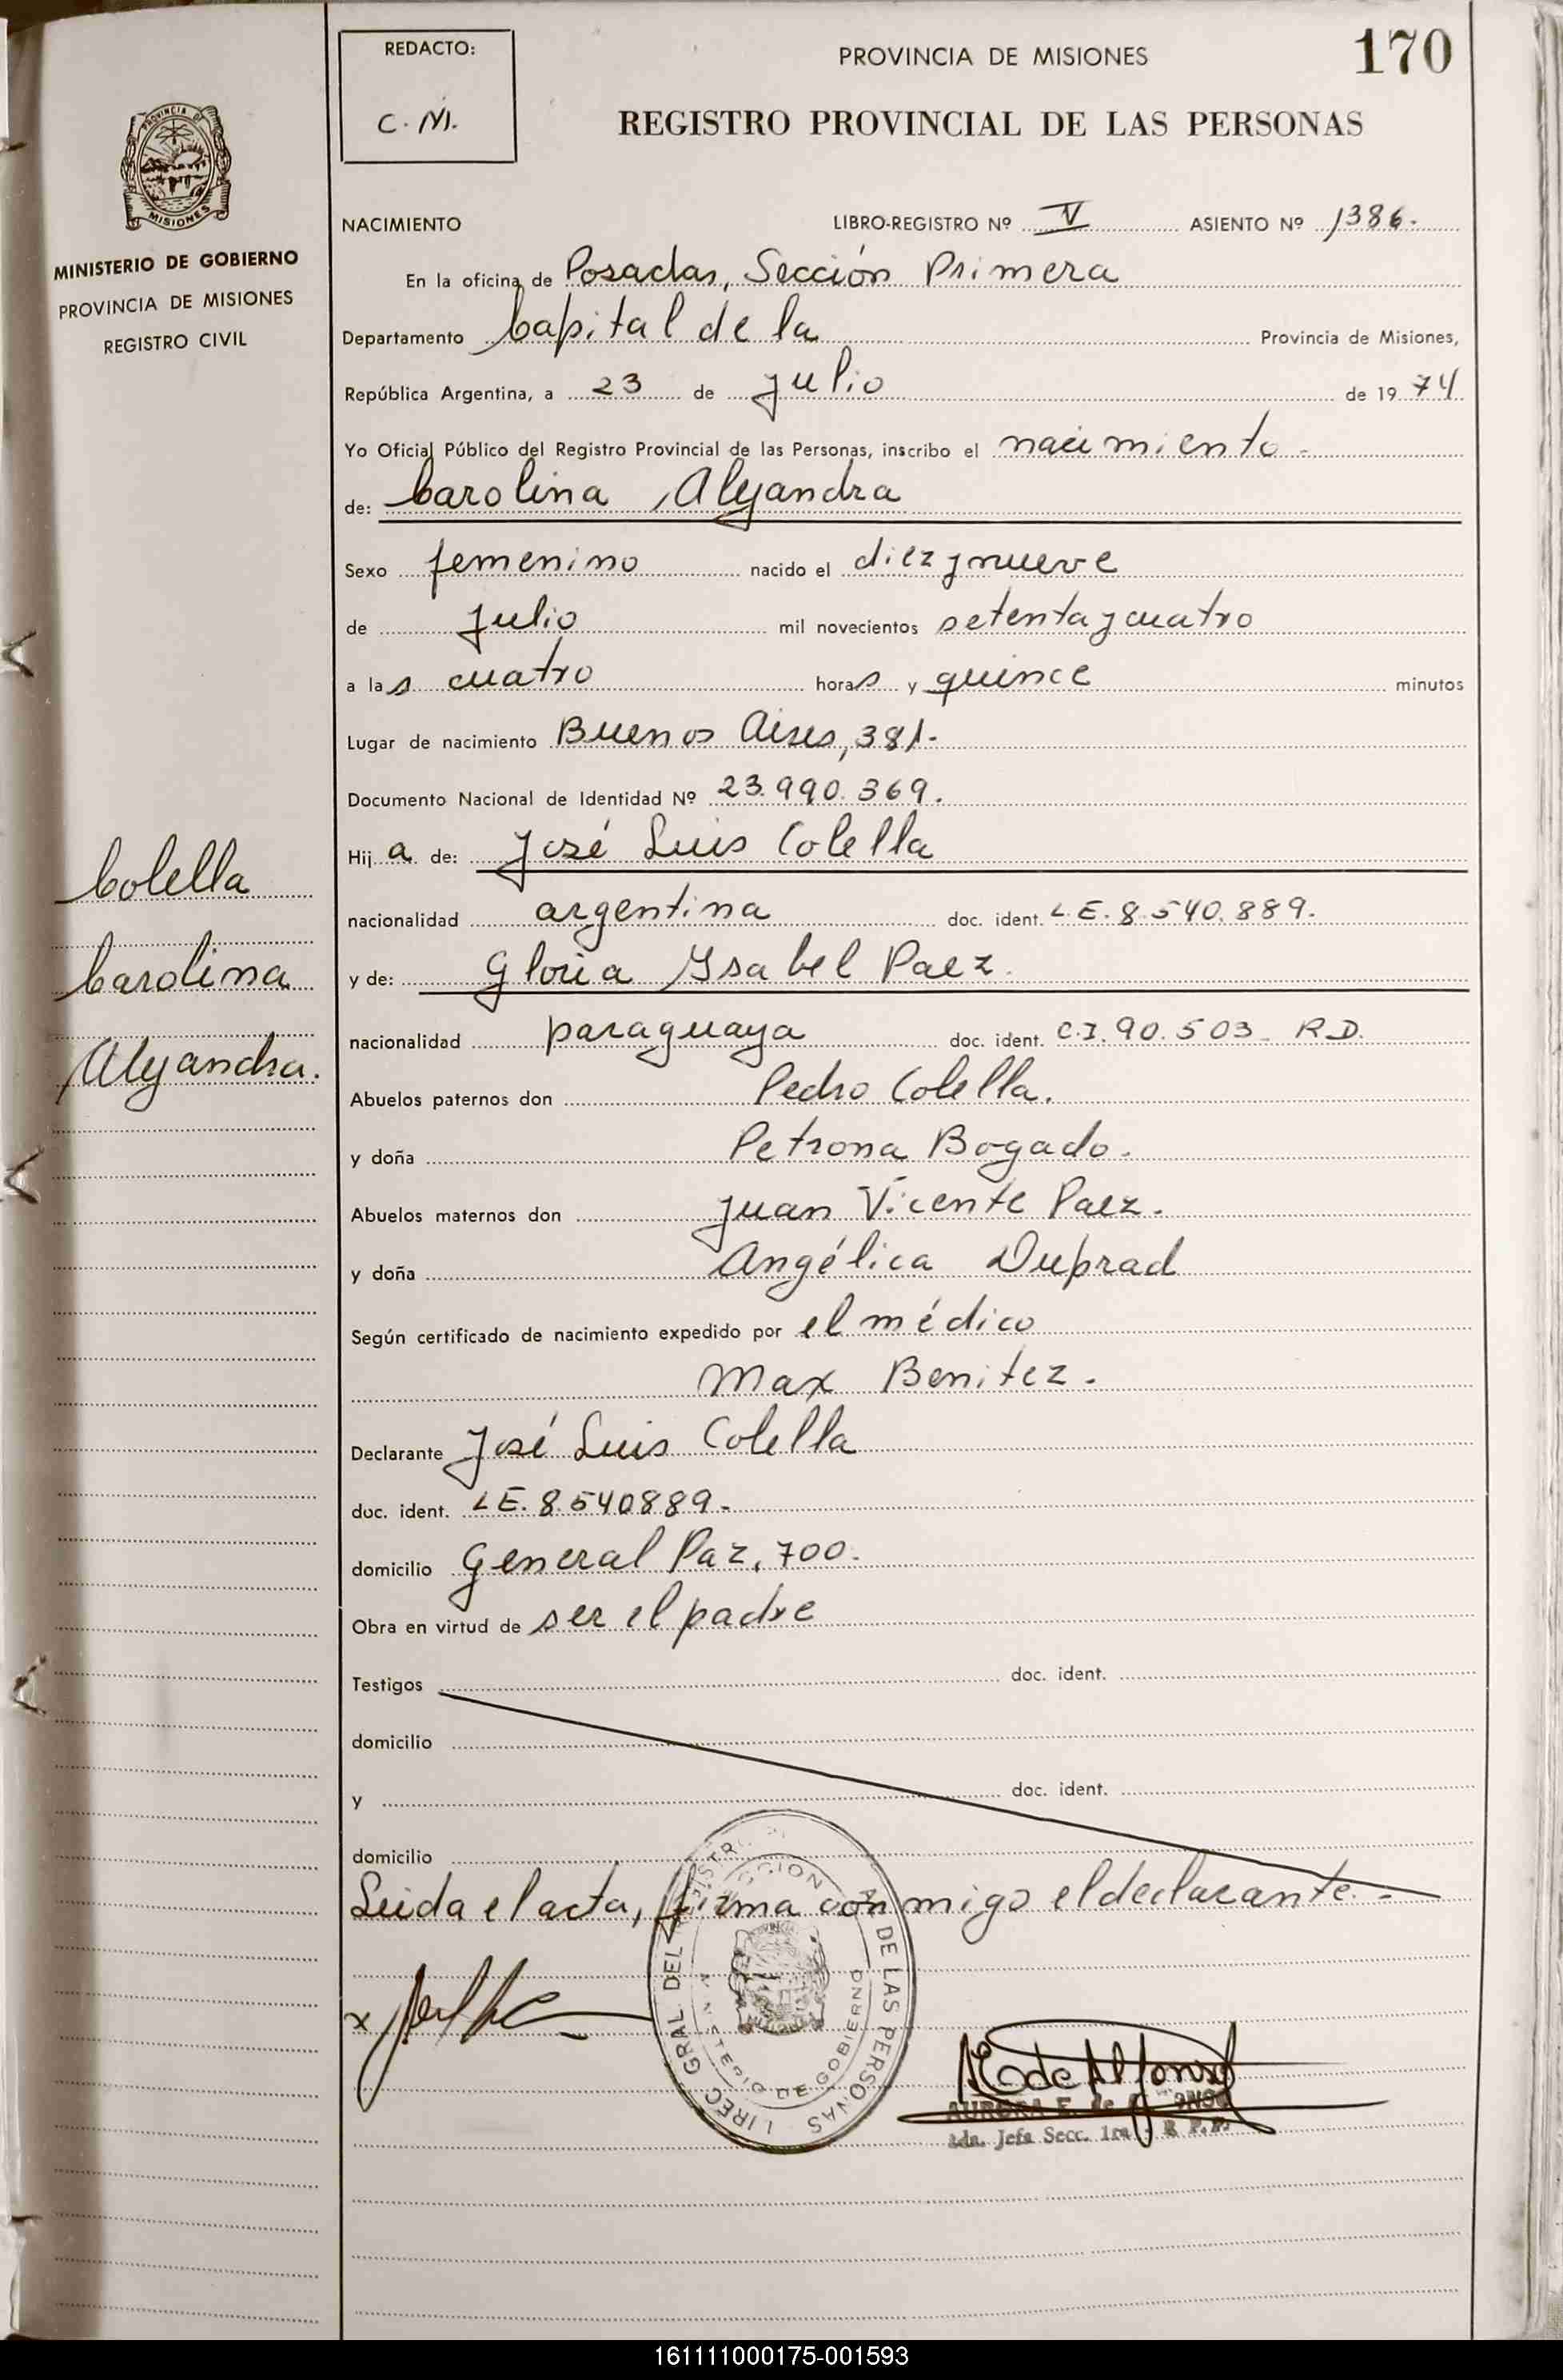 REDACTO:
C. M.
PROVINCIA DE MISIONES
170
REGISTRO PROVINCIAL DE LAS PERSONAS
PROVINCIA DE
MISIONES
MINISTERIO DE GOBIERNO
PROVINCIA DE MISIONES
REGISTRO CIVIL
NACIMIENTO LIBRO-REGISTRO Nº V ASIENTO Nº 1386.
En la oficina de Posadas, Sección Primera
Departamento Capital de la Provincia de Misiones,
República Argentina, a 23 de julio de 1974
Yo Oficial Público del Registro Provincial de las Personas, inscribo el nacimiento -
de: Carolina Alejandra
Sexo femenino nacido el diez y nueve
de julio mil novecientos setenta y cuatro
a las cuatro horas y quince minutos
Lugar de nacimiento Buenos Aires, 381.-
Documento Nacional de Identidad Nº 23.990.369.
Hija de: José Luis Colella
nacionalidad argentina doc. ident. L.E. 8.540.889.
y de: Gloria Ysabel Paez.
nacionalidad paraguaya doc. ident. C.I. 90.503. R.D.
Abuelos paternos don Pedro Colella.
y doña Petrona Bogado.
Abuelos maternos don Juan Vicente Paez.
y doña Angélica Duprad
Según certificado de nacimiento expedido por el médico
Max Benitez.
Declarante José Luis Colella
doc. ident. LE. 8.540889.-
domicilio General Paz, 700.
Obra en virtud de ser el padre
Testigos doc. ident.
domicilio
y doc. ident.
domicilio
Leida el acta, firma conmigo el declarante.-
Colella
Carolina
Alejandra.
x
DE LAS PERSONAS
GRAL DEL
DE GOBIERNO
AE de Alfonso
AURORA E. de
Jefa Secc. 1ra R. P. P.
161111000175-001593